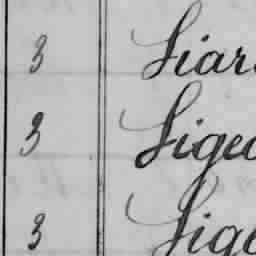 3 Siar
3 Sige
3 Sig